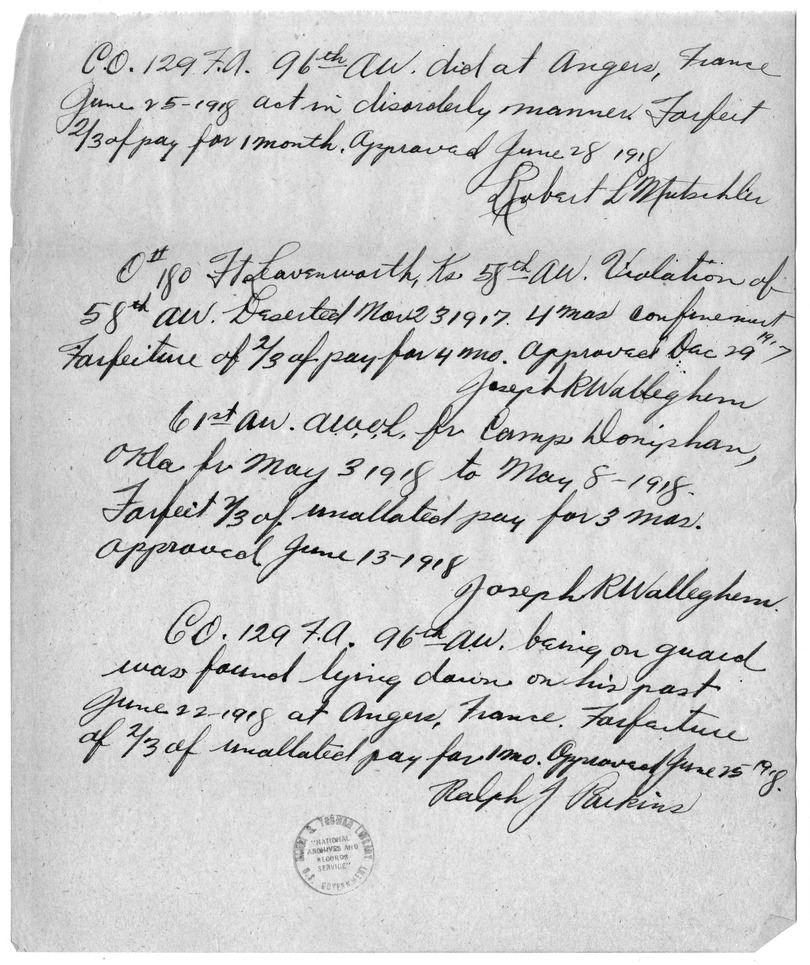 C.O. 129 F.A. 96th AW. did at Angers, France
June 25-1918 act in disorderly manner. Forfeit
2/3 of pay for 1 month. Approved June 28 1918
Robert L Mutschler
O # 180 Ft Leavenworth, Ks 58th AW. Violation of
58th AW. Deserted Nov 23 1917. 4 mos confinement
Forfeiture of 2/3 of pay for 4 mo. Approved Dec 29 1917
Joseph R Walleghem
61st AW. A.W.O.L. fr Camp Doniphan,
Okla fr May 3 1918 to May 8-1918.
Forfeit 2/3 of unallated pay for 3 mos.
Approved June 13-1918
Joseph R Walleghem.
CO. 129 F.A. 96th AW. being on guard
was found lying down on his post
June 22-1918 at Angers, France. Forfeiture
of 2/3 of unallated pay for 1 mo. Approved June 25 1918.
Ralph J Perkins
HARRY S. TRUMAN LIBRARY
"NATIONAL
ARCHIVES AND
RECORDS
SERVICE"
U.S. GOVERNMENT